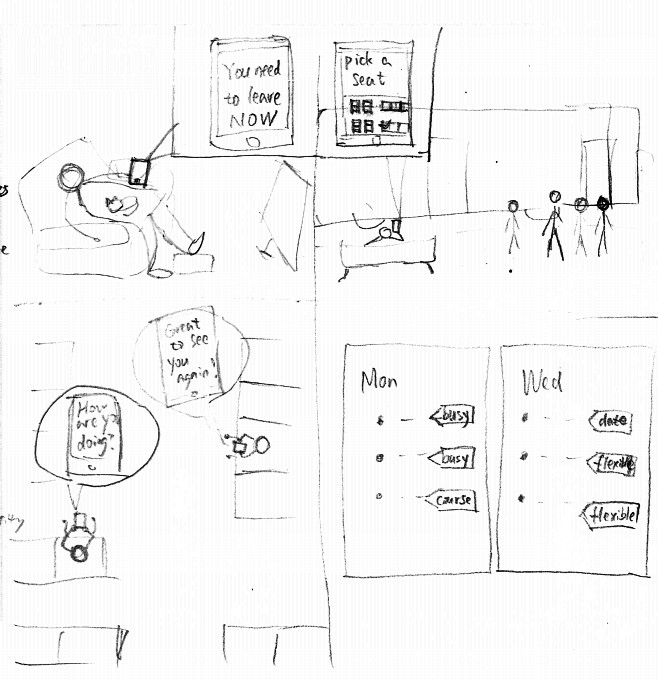 You need
to leave
NOW
pick a
seat
Great
to see
you
again!
How
are y?
doing?
Mon
busy
busy
course
Wed
date
flexible
flexible